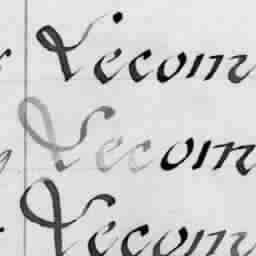 Lecom
Lecom
Lecom